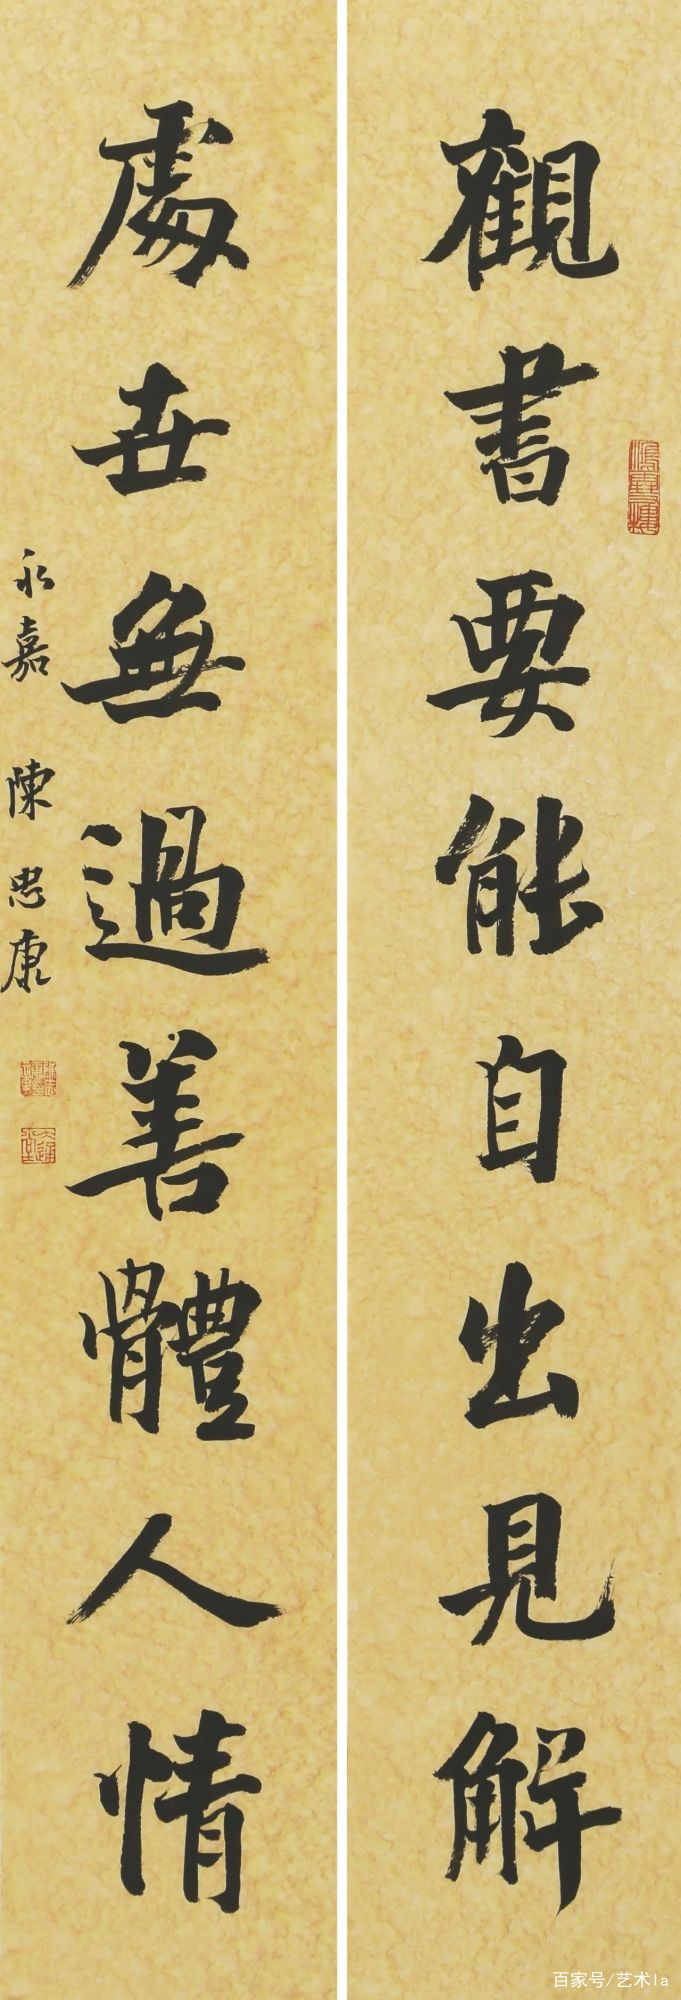 觀書要能自出見解
處世無過善體人情
永嘉 陳忠康
百家号/艺术la